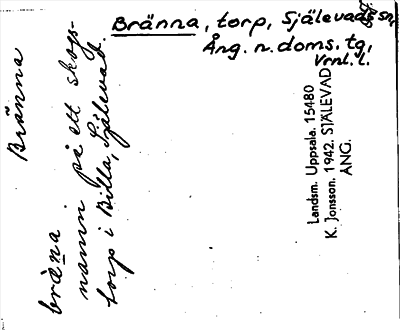 Bränna, torp, Själevads sn,
Ång. n. doms. tg,
Vrnl. l.
Bränna
bräna
namn på ett skogs-
torp i Billa, Själevad.
Landsm. Uppsala. 15480
K. Jonsson. 1942. SJÄLEVAD
ÅNG.